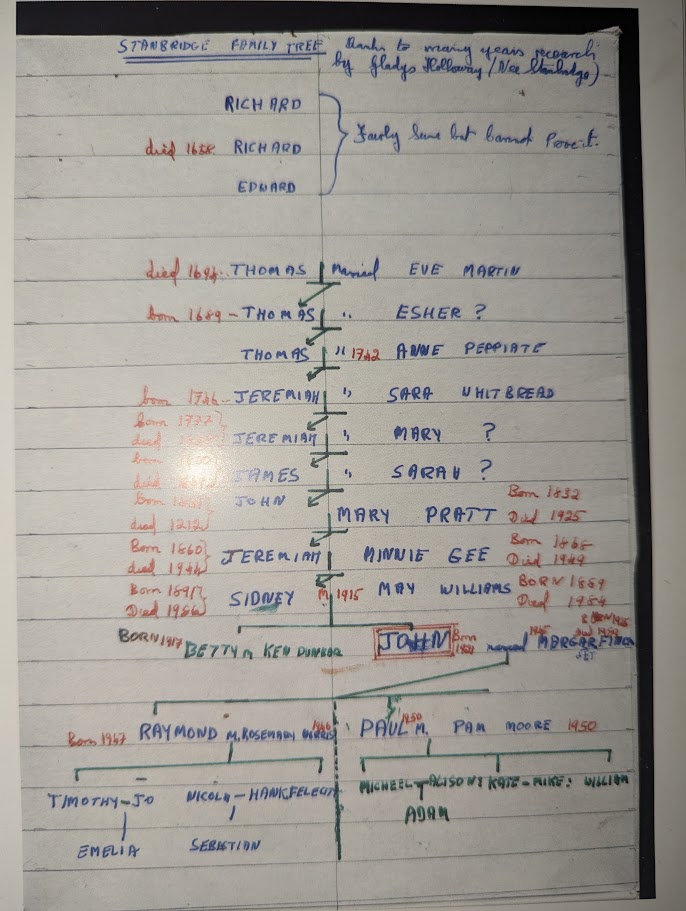 STANBRIDGE FAMILY TREE thanks to many years research
by Gladys Holloway (Nee Stanbridge)
RICHARD
died 1638 RICHARD Fairly Sure but Cannot Prove it.
EDWARD
died 1694 THOMAS Married EVE MARTIN
born 1689 - THOMAS " ESHER ?
THOMAS " 1742 ANNE PEPPIATE
born 1746 - JEREMIAH " SARA WHITBREAD
Born 1777
died JEREMIAH " MARY ?
born
died JAMES " SARAH ?
Born JOHN Born 1832
died 1212 MARY PRATT Died 1925
Born 1860 Born 1868
died 1944 JEREMIAH MINNIE GEE Died 1949
Born 1891 BORN 1889
Died 1986 SIDNEY M 1915 MAY WILLIAMS Died 1984
BORN 1917 BETTY M KEN DUNBAR JOHN Born 1921 married 1945 MARGARET
Born 1947 RAYMOND M. ROSEMARY 1946 PAUL 1950 M. PAM MOORE 1950
TIMOTHY - JO NICOLA - HANK MICHEEL ALISON KATE - MIKE : WILLIAM
ADAM
EMELIA SEBASTIAN